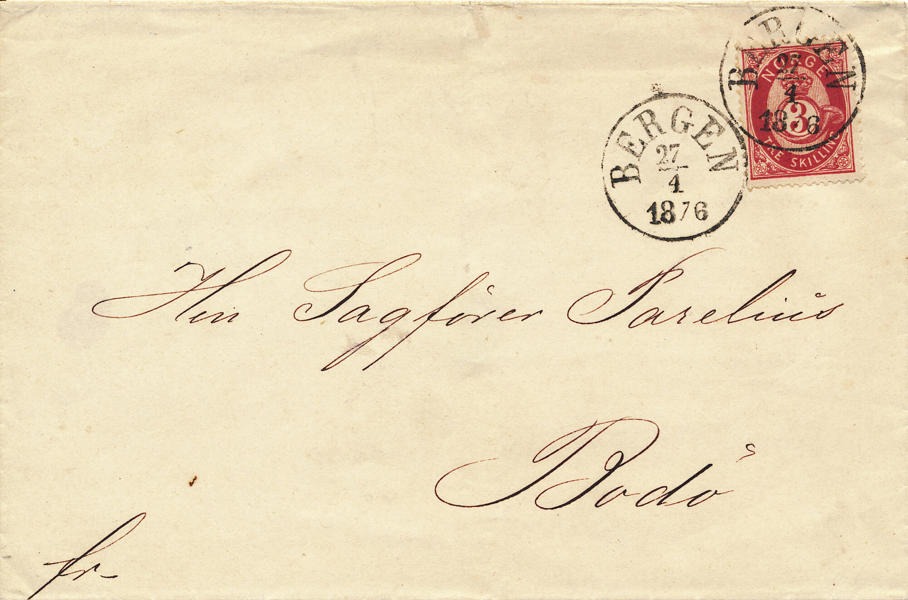 BERGEN
27
4
1876
NORGE
3
TRE SKILLING
BERGEN
27
4
1876
Hrr Sagförer Parelius
Bodö
fr.